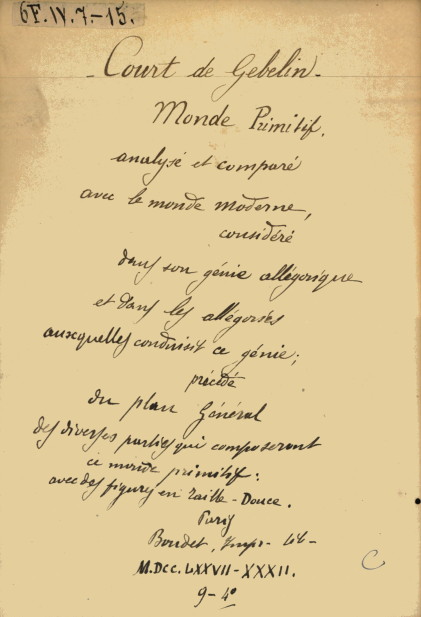 6F.IV.7.-15.
- Court de Gebelin -
Monde Primitif,
analysé et comparé
avec le monde moderne,
considéré
dans son génie allégorique
et dans les allégories
auxquelles conduisit ce génie;
précédé
du plan Général
des diverses parties qui composeront
ce monde primitif:
avec des figures en Taille-Douce.
Paris
Boudet, Impr- Lib-
M.DCC.LXXVII-XXXII.
9-4º
C